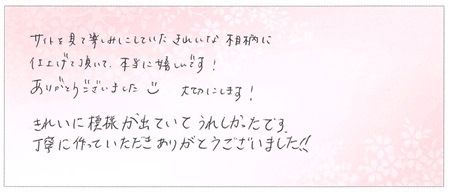 サイトを見て楽しみにしていた きれいな 相柄に
仕上げて頂いて、本当に嬉しいです!
ありがとうございました 大切にします!
きれいに模様が出ていてうれしかったです。
丁寧に作っていただきありがとうございました!!